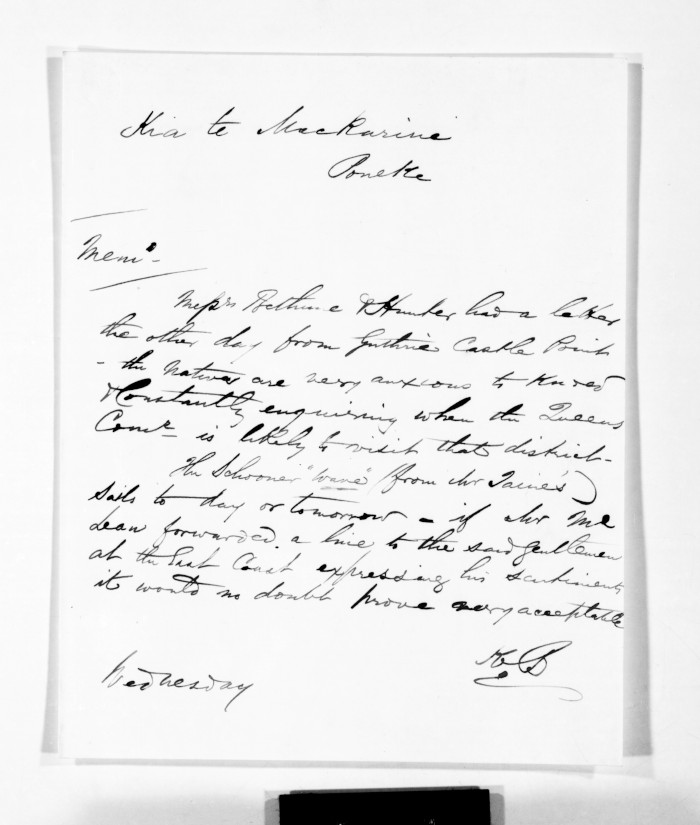 Kia te Mackarine
Poneke
Memo -
Messrs Bethune & Hunter had a letter
the other day from Guthrie Castle Point
- the Natives are very anxious to know
& Constantly enquiring when the Queens
Comr - is likely to visit that district -
The Schooner "Wave" (from Mr Taine's)
Sails to day or tomorrow - if Mr Mc
Lean forwarded a line to the said gentlemen
at the East Coast expressing his sentiments
it would no doubt prove very acceptable
Wednesday